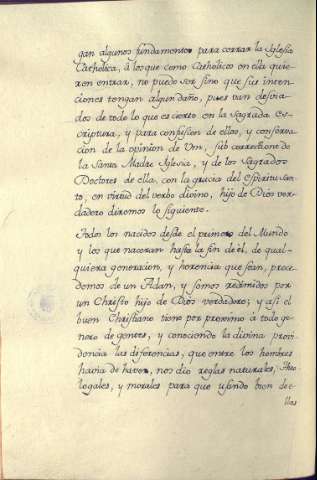 gan algunos fundamentos para cerrar la Iglesia
Catholica, á los que como Catholicos en ella quie-
ren entrar, no puede ser sino que sus inten-
ciones tengan algun daño, pues van desvia-
dos de todo lo que es cierto en la Sagrada es-
criptura, y para confusion de ellos, y conserva-
cion de la opinion de Vm, sub correctione de
la Santa Madre Iglesia, y de los Sagrados
Doctores de ella, con la gracia del Espiritu San-
to, en virtud del verbo divino, hijo de Dios ver-
dadero diremos lo siguiente.
Todos los nacidos desde el primero del Mundo
y los que naceran hasta la fin de él, de qual-
quiera generacion, y herencia que sean, proce-
demos de un Adan, y somos redimidos por
un Christo hijo de Dios verdadero; y así el
buen Christiano tiene por proximo á todo ge-
nero de gentes, y conociendo la divina provi-
dencia las diferencias, que entre los hombres
havia de haver, nos dio reglas naturales, Theo-
logales, y morales para que usando bien de e-
llas